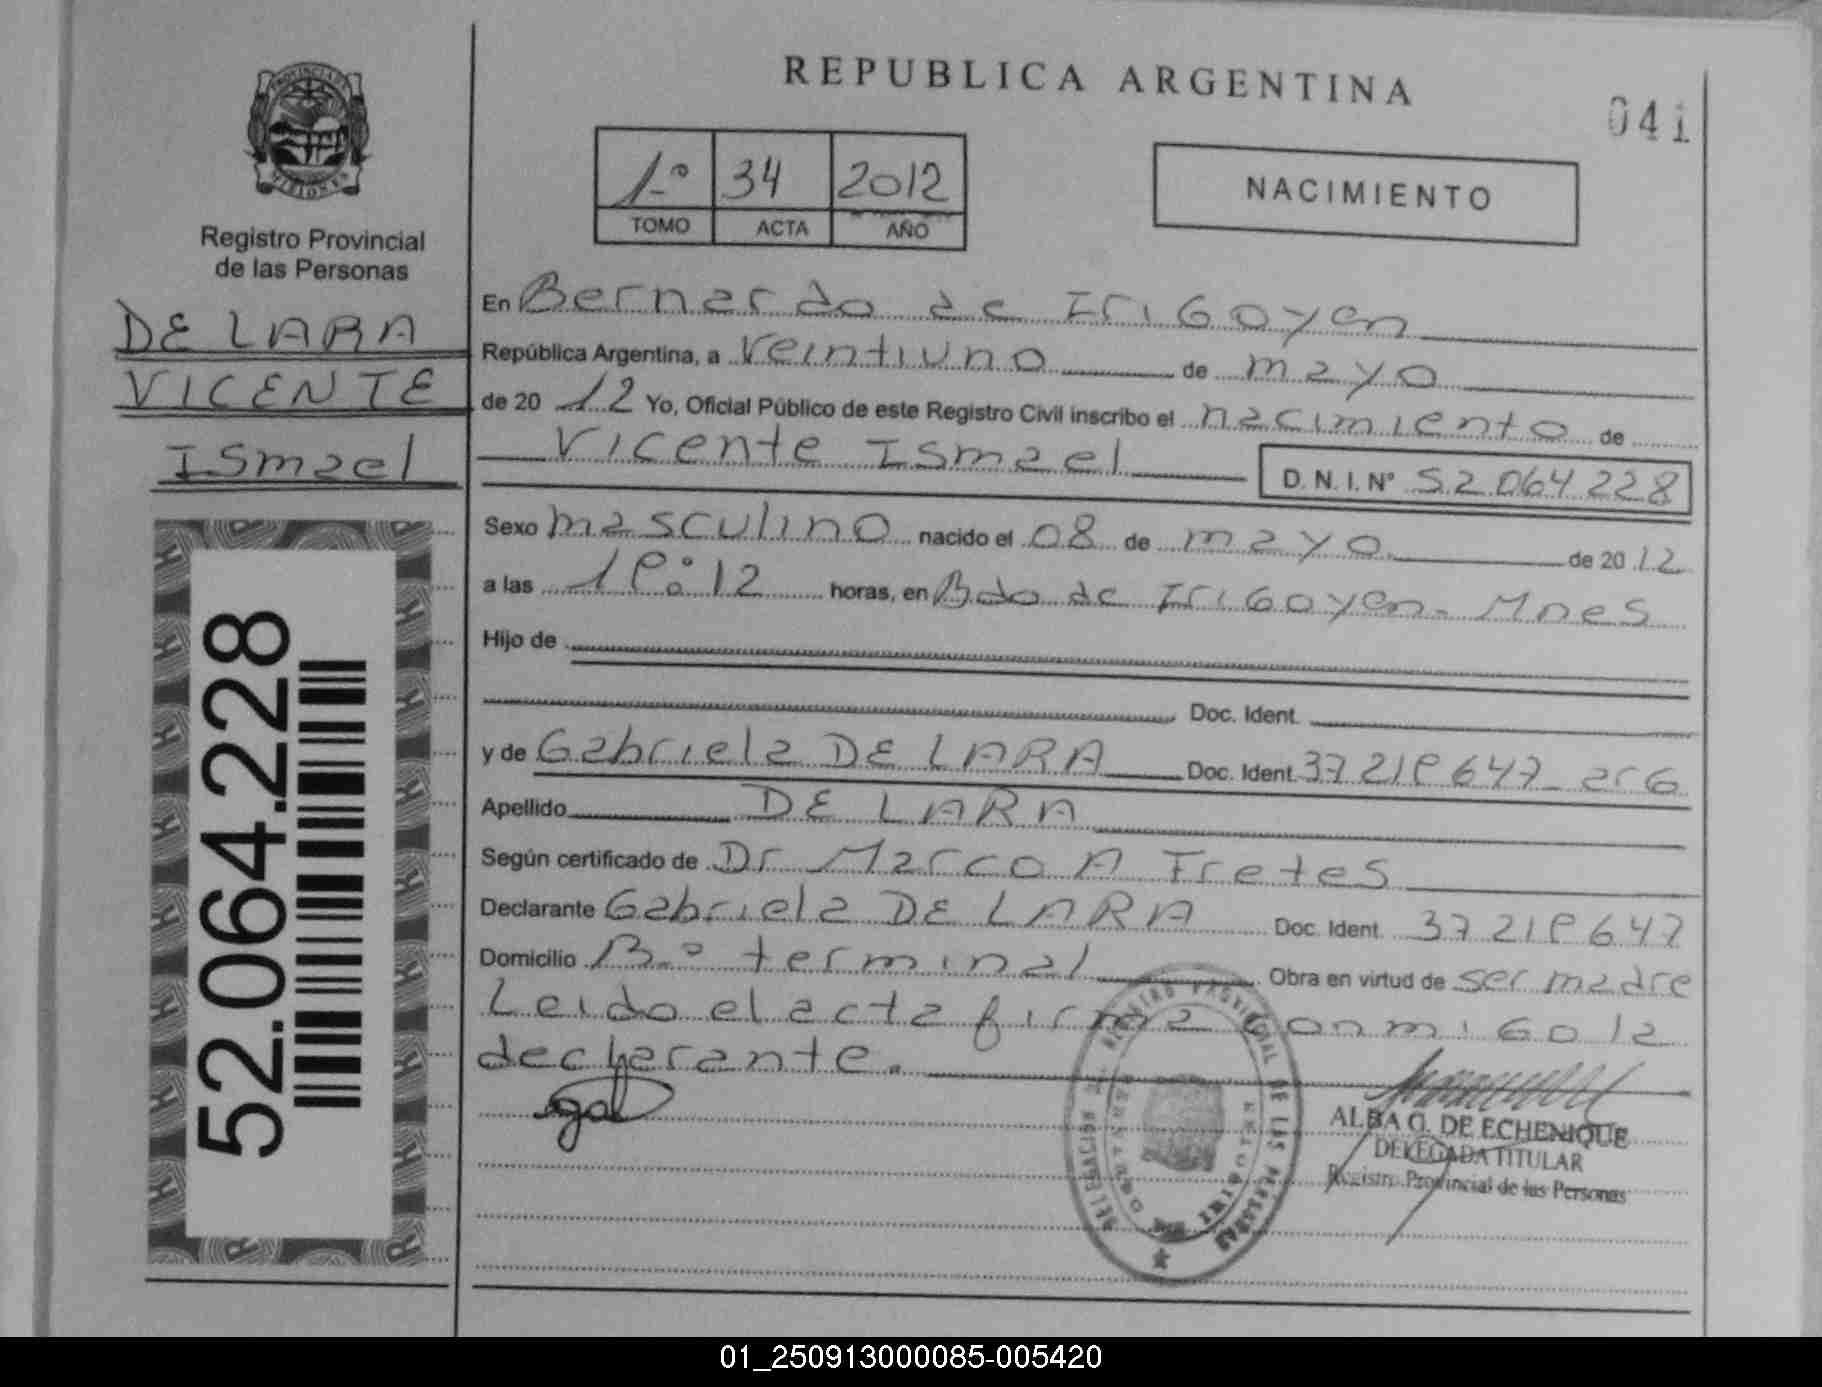 REPUBLICA ARGENTINA
041
PROVINCIA DE
MISIONES
Registro Provincial
de las Personas
DE LARA
VICENTE
Ismael
52.064.228
1-º 34 2012
TOMO ACTA AÑO
NACIMIENTO
En Bernardo de Irigoyen
República Argentina, a veintiuno de mayo
de 2012 Yo, Oficial Público de este Registro Civil inscribo el nacimiento de
Vicente Ismael D.N.I.Nº 52 064 228
Sexo masculino nacido el 08 de mayo de 2012
a las 19:12 horas, en Bdo de Irigoyen - Mnes
Hijo de
Doc. Ident.
y de Gabriela DE LARA Doc. Ident. 37 219 647 - arg
Apellido DE LARA
Según certificado de Dr Marco A Fretes
Declarante Gabriela DE LARA Doc. Ident. 37 219 647
Domicilio B.º terminal Obra en virtud de ser madre
Leido el acta firma conmigo la
declarante.
gal
DELEGACION DE REGISTRO PROVINCIAL DE LAS PERSONAS
BERNARDO DE IRIGOYEN
ALBA G. DE ECHENIQUE
DELEGADA TITULAR
Registro Provincial de las Personas
01_250913000085-005420